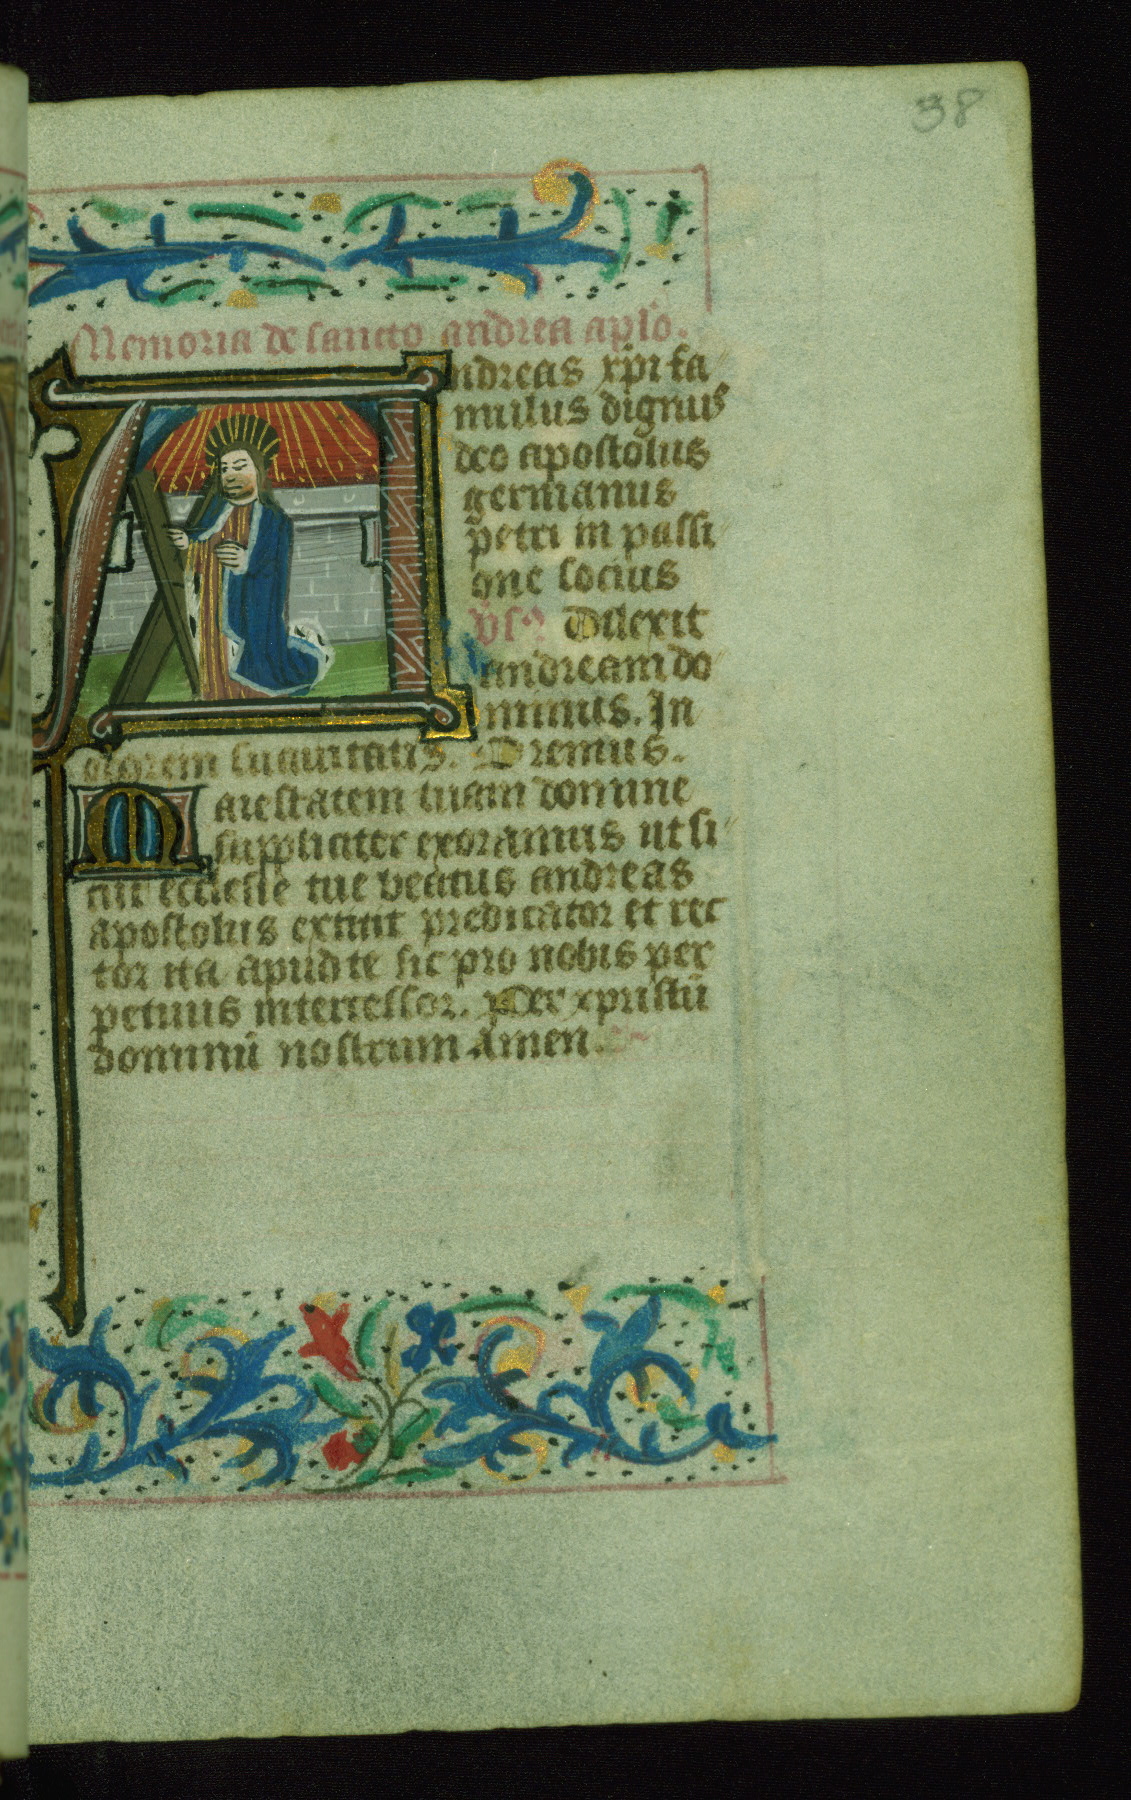 38
Memoria de sancto andrea aplo.
Andreas xpi fa
mulus dignus
deo apostolus
germanus
petri in passi
one socius
vers9 Dilexit
andream do
minus. In
odorem suauitatis. Oremus.
Maiestatem tuam domine
suppliciter exoramus ut si
cut ecclesie tue beatus andreas
apostolus extitit predicator et rec
tor ita apud te sit pro nobis per
petuus intercessor. Per xpristū
dominū nostrum Amen.